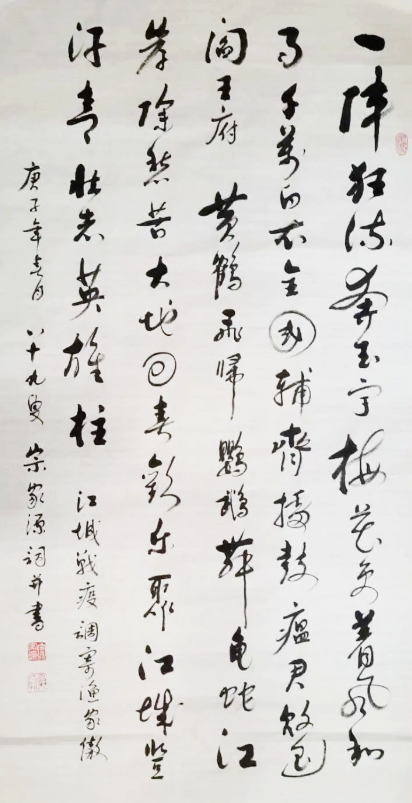 一阵狂流奔玉宇梅花更着风和
雨千万白衣全国辅齐擂鼓瘟君
阎王府 黄鹤飞归鹦鹉舞龟蛇江
岸除愁苦大地回春欢乐聚江城竖
汗青壮志英雄柱 江城战疫调寄渔家傲
庚子年春月八十九叟宗家源词并书